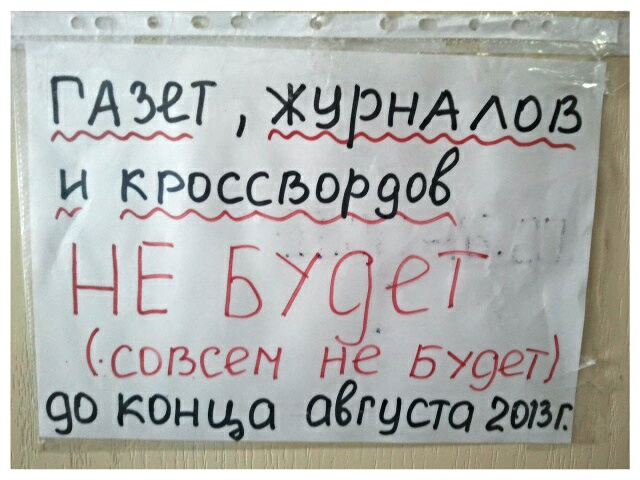 ГАЗЕТ, ЖУРНАЛОВ
и кроссвордов
НЕ БУДЕТ
(совсем не будет)
до конца августа 2013г.